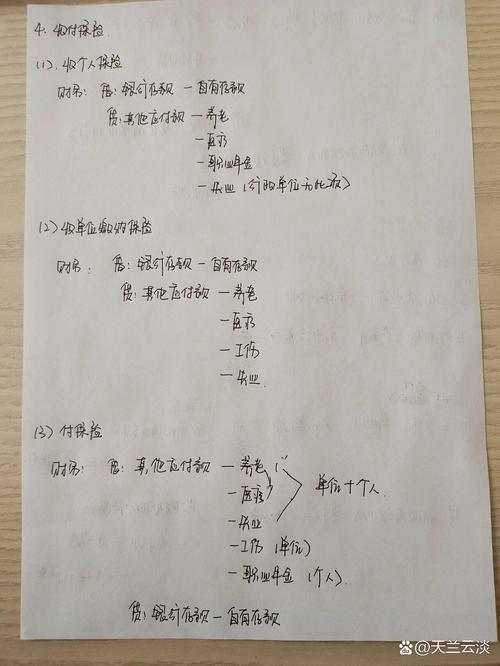 4. 收付保险.
(1). 收个人保险
财务: 借: 银行存款 — 自有存款
贷: 其他应付款 — 养老
— 医疗
— 职业年金
— 失业 (行政单位无此项)
(2) 收单位缴纳保险
财务: 借: 银行存款 — 自有存款
贷: 其他应付款 — 养老
— 医疗
— 工伤
— 失业.
(3) 付保险
财务: 借: 其他应付款 — 养老
— 医疗 单位+个人.
— 失业
— 工伤 (单位)
— 职业年金 (个人).
贷: 银行存款 — 自有存款
@天兰云淡